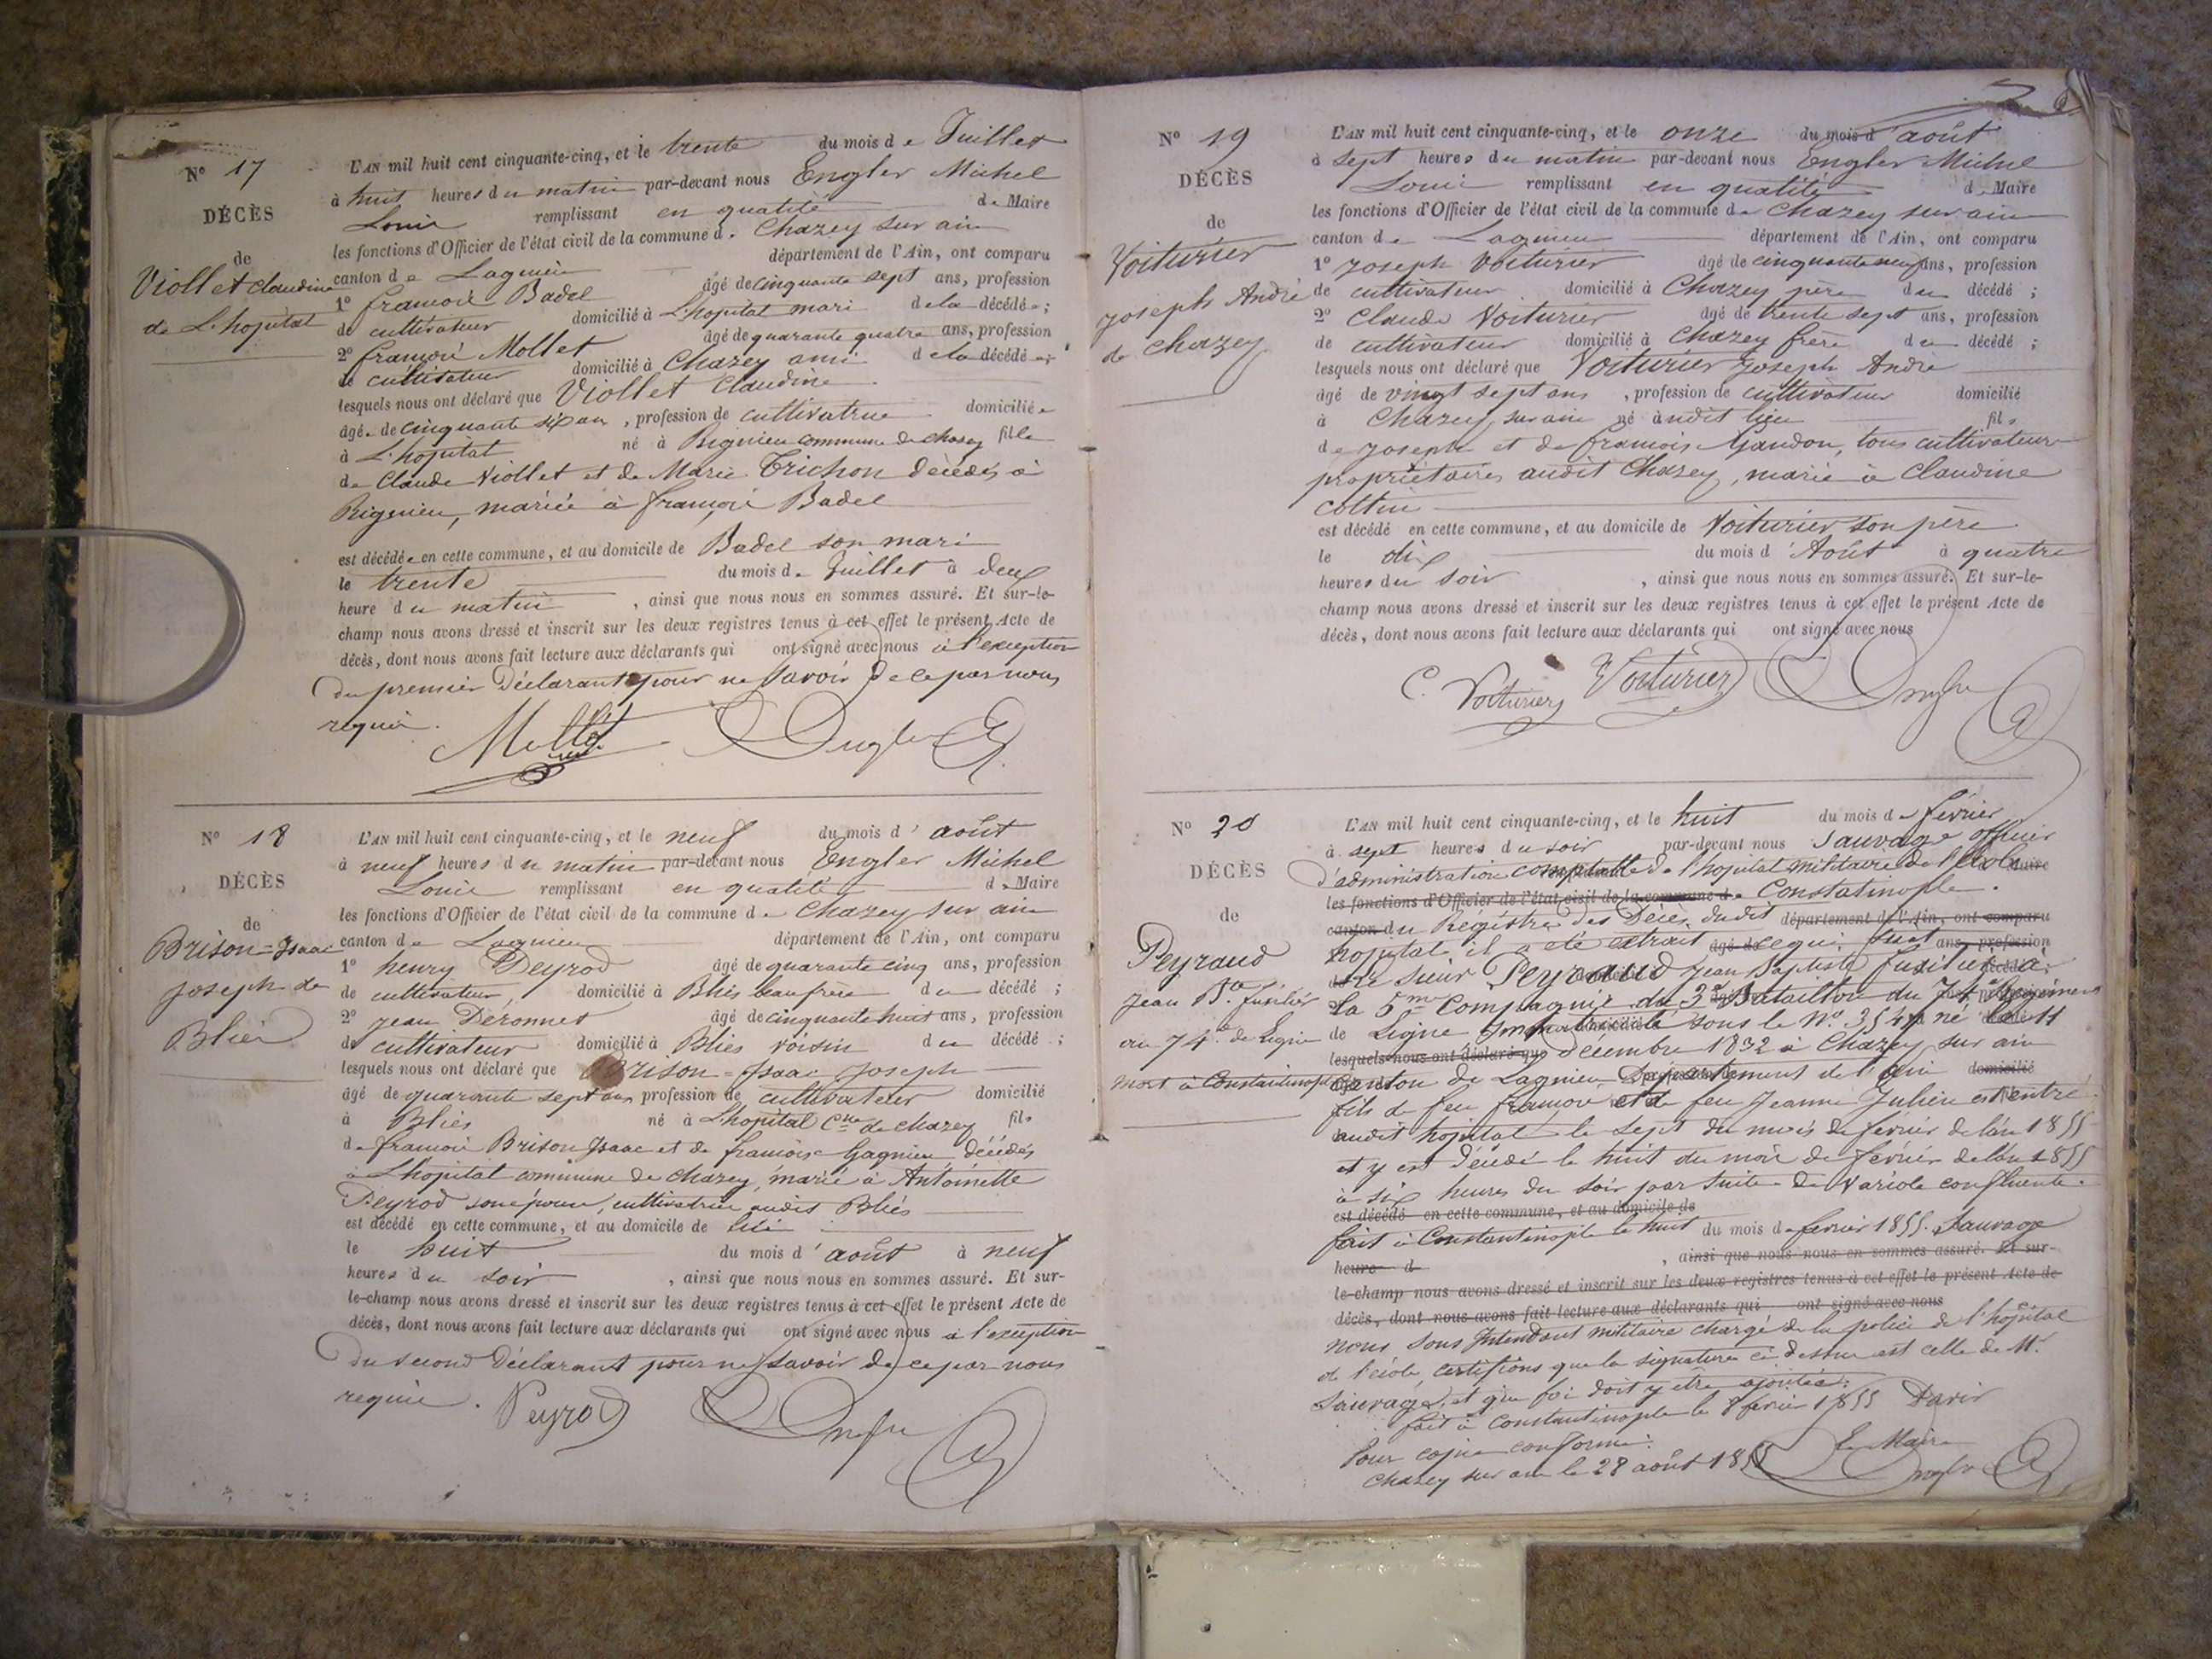 N° 17
DÉCÈS
de
Viollet Claudine
de L'hopital
L'AN mil huit cent cinquante-cinq, et le trente du mois de Juillet
à huit heures du matin par-devant nous Engler Michel
Louis remplissant en qualité de Maire
les fonctions d'Officier de l'état civil de la commune de Chazey sur ain
canton de Lagnieu département de l'Ain, ont comparu
1° françois Badel âgé de cinquante sept ans, profession
de cultivateur domicilié à L'hopital mari de la décédée ;
2° françois Mollet âgé de quarante quatre ans, profession
de cultivateur domicilié à Chazey ami de la décédée ;
lesquels nous ont déclaré que Viollet Claudine
âgée de cinquante six ans, profession de cultivatrice domiciliée
à L'hopital né à Rignieu commune de chazey fille
de Claude Viollet et de Marie Trichon décédés à
Rignieu, mariée à françois Badel
est décédée en cette commune, et au domicile de Badel son mari
le trente du mois de Juillet à deux
heure du matin, ainsi que nous nous en sommes assuré. Et sur-le-
champ nous avons dressé et inscrit sur les deux registres tenus à cet effet le présent Acte de
décès, dont nous avons fait lecture aux déclarants qui ont signé avec nous à l'exception
du premier Déclarant pour ne savoir de ce par nous
requis.
Mollet Engler
N° 18
DÉCÈS
de
Brison=Isaac
joseph de
Bliès
L'AN mil huit cent cinquante-cinq, et le neuf du mois d'août
à neuf heures du matin par-devant nous Engler Michel
Louis remplissant en qualité de Maire
les fonctions d'Officier de l'état civil de la commune de Chazey sur ain
canton de Lagnieu département de l'Ain, ont comparu
1° henry Peyrod âgé de quarante cinq ans, profession
de cultivateur, domicilié à Bliès beau frère du décédé ;
2° jean Deronnet âgé de cinquante huit ans, profession
de cultivateur domicilié à Bliès voisin du décédé ;
lesquels nous ont déclaré que Brison=Isaac joseph
âgé de quarante sept ans profession de cultivateur domicilié
à Bliès né à L'hopital Cne de chazey fils
de françois Brison Isaac et de françoise Gagnieu décédés
à L'hopital commune de chazey, marié à Antoinette
Peyrod son épouse, cultivatrice audit Bliès
est décédé en cette commune, et au domicile de
le huit du mois d'août à neuf
heures du soir, ainsi que nous nous en sommes assuré. Et sur-
le-champ nous avons dressé et inscrit sur les deux registres tenus à cet effet le présent Acte de
décès, dont nous avons fait lecture aux déclarants qui ont signé avec nous à l'exception
du second Déclarant pour ne savoir de ce par nous
requis. Peyrod Engler
N° 19
DÉCÈS
de
Voiturier
joseph André
de chazey
L'AN mil huit cent cinquante-cinq, et le onze du mois d'août
à sept heures du matin par-devant nous Engler Michel
Louis remplissant en qualité de Maire
les fonctions d'Officier de l'état civil de la commune de Chazey sur ain
canton de Lagnieu département de l'Ain, ont comparu
1° joseph Voiturier âgé de cinquante neuf ans, profession
de cultivateur domicilié à Chazey père du décédé ;
2° Claude Voiturier âgé de trente sept ans, profession
de cultivateur domicilié à Chazey frère du décédé ;
lesquels nous ont déclaré que Voiturier joseph André
âgé de vingt sept ans, profession de cultivateur domicilié
à Chazey sur ain né audit lieu fils
de joseph et de françoise Gandon, tous cultivateurs
propriétaires audit Chazey, marié à Claudine
Coltin
est décédé en cette commune, et au domicile de Voiturier son père
le dix du mois d'Août à quatre
heures du soir, ainsi que nous nous en sommes assuré. Et sur-le-
champ nous avons dressé et inscrit sur les deux registres tenus à cet effet le présent Acte de
décès, dont nous avons fait lecture aux déclarants qui ont signé avec nous
C. Voiturier Voiturier Engler
N° 20
DÉCÈS
de
Peyraud
Jean Bte fusilier
au 74e de Ligne
mort à Constantinople
L'AN mil huit cent cinquante-cinq, et le huit du mois de février
à sept heures du soir par-devant nous Sauvage officier
d'administration comptable de l'hopital militaire de l'école Maire
les fonctions d'Officier de l'état civil de la commune de Constatinople.
canton du Régistre des Décès dudit département de l'Ain, ont comparu
hopital il a été extrait âgé de ce qui suit ans, profession
Le Sieur Peyraud Jean Baptiste fusilier à
la 5me Compagnie du 3e Bataillon du 74e Régiment
de Ligne immatriculé sous le N° 3547 né le 11
lesquels nous ont déclaré que décembre 1832 à Chazey sur ain
canton de Lagnieu Département de l'Ain domicilié
fils de feu françois et de feu Jeanne Julien est entré
audit hopital le sept du mois de février de l'an 1855
et y est décédé le huit du mois de février de l'an 1855
à six heures du soir par suite de Variole confluente.
est décédé en cette commune, et au domicile de
fait à Constantinople le huit du mois de février 1855. Sauvage
heure d , ainsi que nous nous en sommes assuré. Et sur-
le-champ nous avons dressé et inscrit sur les deux registres tenus à cet effet le présent Acte de
décès, dont nous avons fait lecture aux déclarants qui ont signé avec nous
nous Sous Intendant militaire chargé de la police de l'hôpital
de l'école, certifions que la signature ci dessus est celle de Mr
Sauvage, et que foi doit y être ajoutée.
fait à Constantinople le 8 février 1855
Pour copie conforme. Le Maire
chazey sur ain le 28 août 1855 Engler